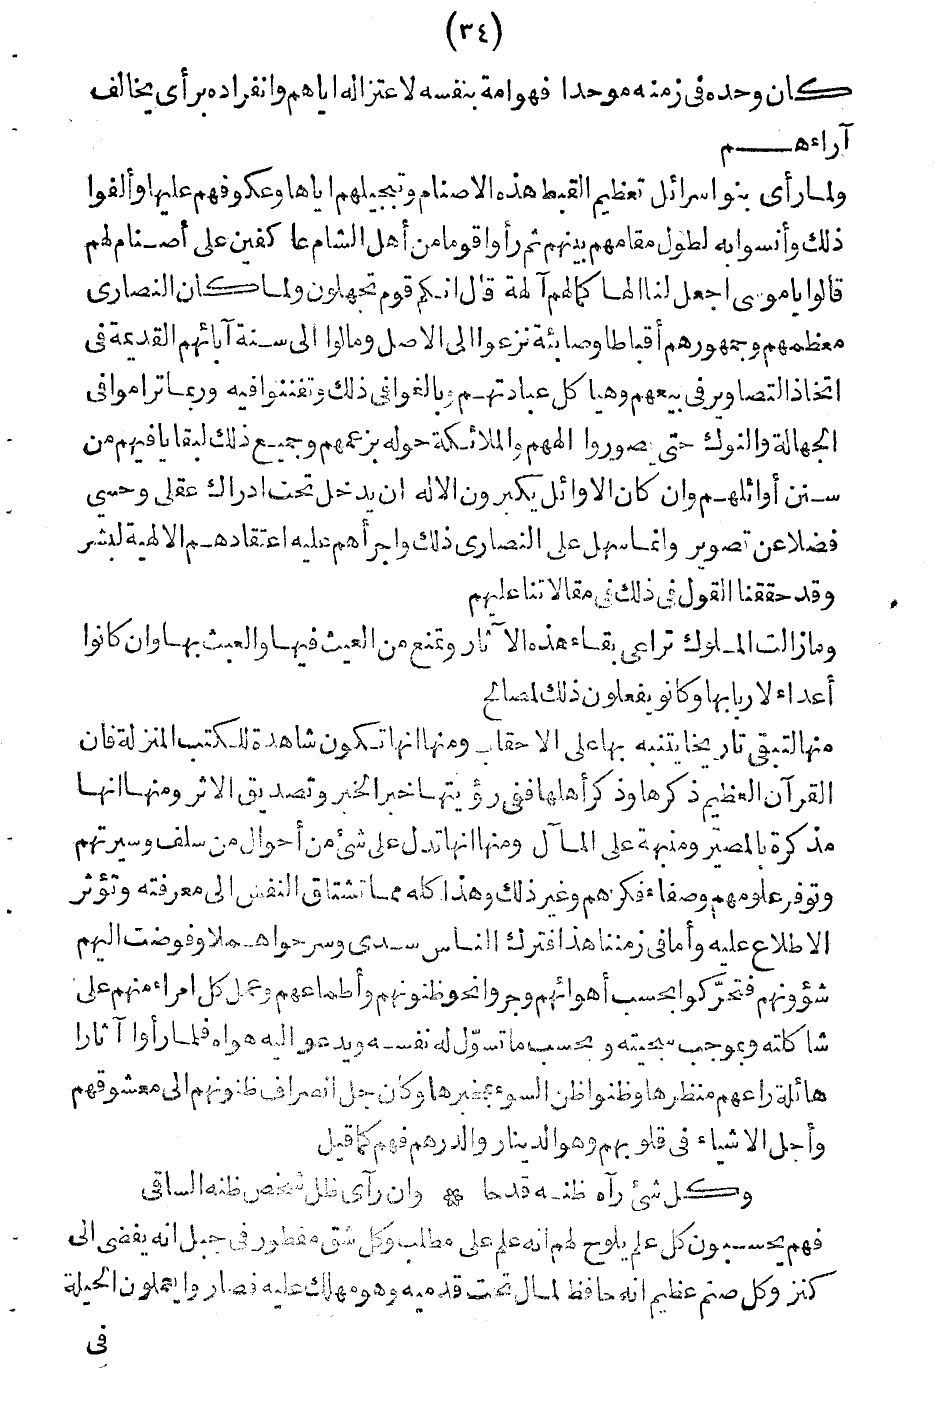 (٣٤)
كان وحده فى زمنه موحدا فهو امة بنفسه لاعتزاله اياهم وانفراده برأى يخالف
آراءهم
ولما رأى بنو اسرائل تعظيم القبط هذه الاصنام وتبجيلهم اياها وعكوفهم عليها وألفوا
ذلك وأنسوا به لطول مقامهم بينهم ثم رأوا قوما من أهل الشام عاكفين على أصنام لهم
قالوا يا موسى اجعل لنا الها كما لهم آلهة قال انكم قوم تجهلون ولما كان النصارى
معظمهم وجمهورهم أقباطا وصابئة نزعوا الى الاصل ومالوا الى سنة آبائهم القديمة فى
اتخاذ التصاوير فى بيعهم وهياكل عبادتهم وبالغوا فى ذلك وتفننوا فيه وربما تراموا فى
الجهالة والنوك حتى يصوروا الههم والملائكة حوله بزعمهم وجميع ذلك لبقايا فيهم من
سنن أوائلهم وان كان الاوائل يكبرون الاله ان يدخل تحت ادراك عقلى وحسى
فضلا عن تصوير وانما سهل على النصارى ذلك واجرأهم عليه اعتقادهم الالهية لبشر
وقد حققنا القول فى ذلك فى مقالاتنا عليهم
ومازالت الملوك تراعى بقاء هذه الآثار وتمنع من العيث فيها والعبث بها وان كانوا
أعداء لاربابها وكانو يفعلون ذلك لمصالح
منها لتبقى تاريخا يتنبه بها على الاحقاب ومنها انها تكون شاهدة للكتب المنزلة فان
القرآن العظيم ذكرها وذكر أهلها ففى رؤيتها خبر الخبر وتصديق الاثر ومنها انها
مذكرة بالمصير ومنبهة على المآل ومنها انها تدل على شئ من أحوال من سلف وسيرتهم
وتوفر علومهم وصفاء فكرهم وغير ذلك وهذا كله مما تشتاق النفس الى معرفته وتؤثر
الاطلاع عليه وأما فى زمننا هذا فترك الناس سدى وسرحوا هملا وفوضت اليهم
شؤونهم فتحركوا بحسب أهوائهم وجروا نحو ظنونهم وأطماعهم وعمل كل امراء منهم على
شاكلته وبموجب سجيته وبحسب ما تسوّل له نفسه ويدعو اليه هواه فلما رأوا آثارا
هائلة راعهم منظرها وظنوا ظن السوء بمخبرها وكان جل انصراف ظنونهم الى معشوقهم
وأجل الاشياء فى قلوبهم وهو الدينار والدرهم فهم كما قيل
وكل شئ رآه ظنه قدحا * وان رآى ظل شخص ظنه الساقى
فهم يحسبون كل علم يلوح لهم انه علم على مطلب وكل شق مفطور فى جبل انه يفضى الى
كنز وكل صنم عظيم انه حافظ لمال تحت قدميه وهو مهلك عليه فصاروا يعملون الحيلة
فى